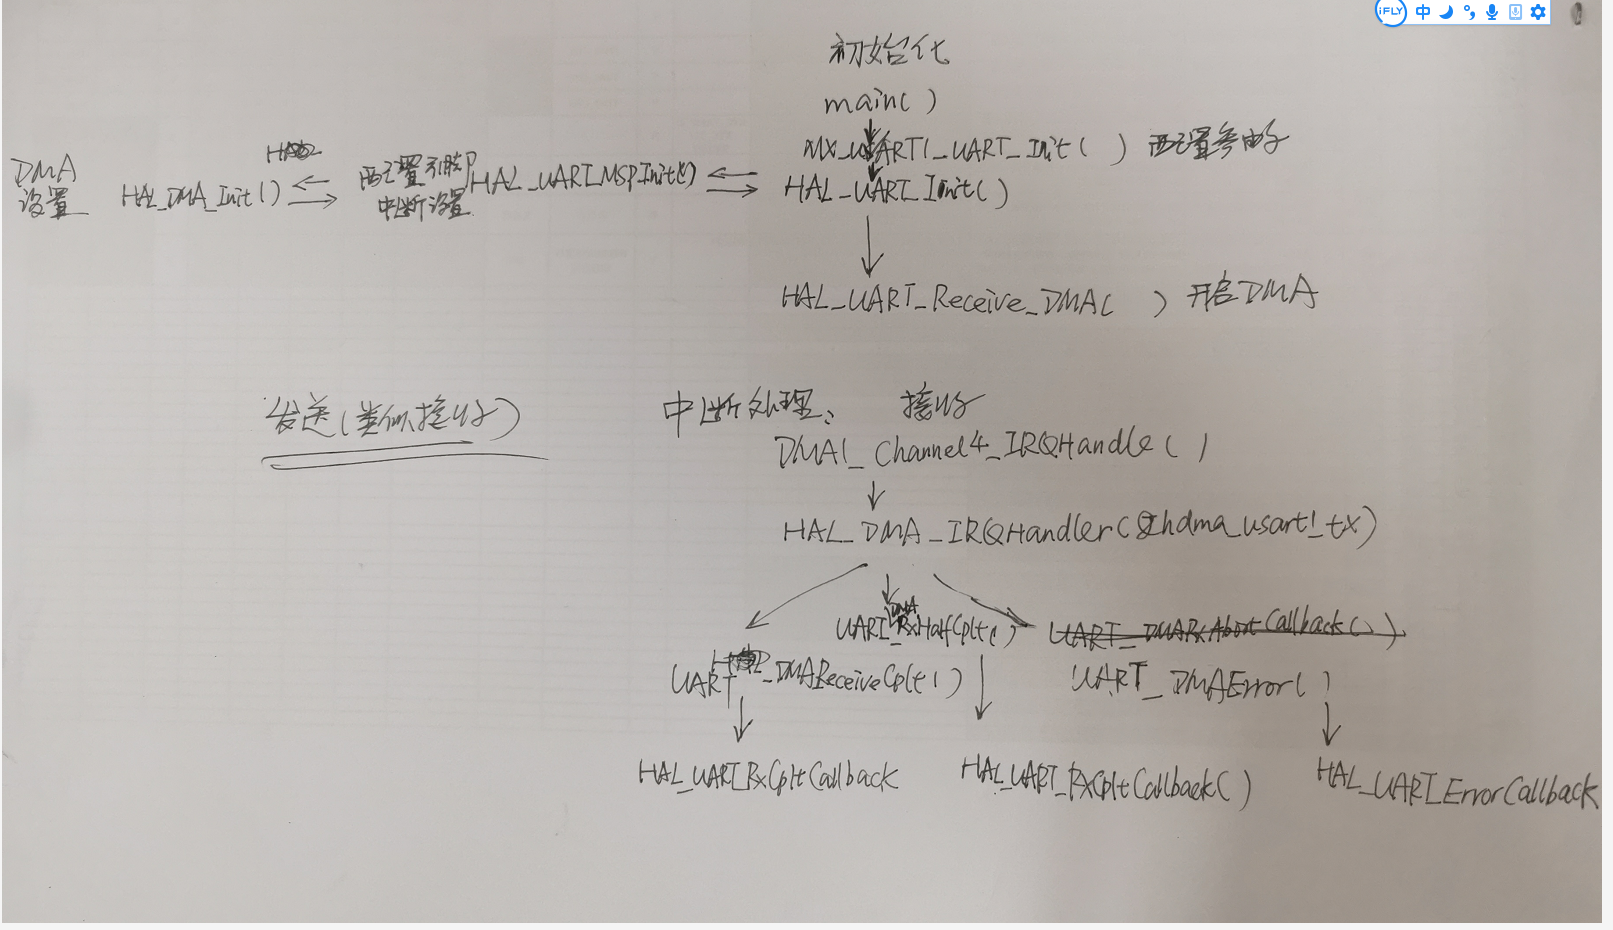 iFLY 中
初始化
main( )
MX_USART1_UART_Init( ) 配置参数
DMA
设置
HAL_DMA_Init( )
配置引脚
中断设置
HAL_UART_MSPInit( )
HAL_UART_Init( )
HAL_UART_Receive_DMA( ) 开启DMA
发送(类似接收)
中断处理: 接收
DMA1_Channel4_IRQHandle( )
HAL_DMA_IRQHandler(&hdma_usart1_tx)
DMA
UART_RxHalfCplt( )
UART_DMARxAbortCallback( )
UART_DMAReceiveCplt( )
UART_DMAError( )
HAL_UART_RxCpltCallback
HAL_UART_RxCpltCallback( )
HAL_UART_ErrorCallback